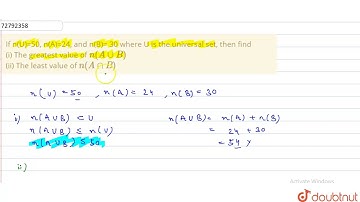 72792358
If n(U)=50, n(A)=24, and n(B)= 30 where U is the universal set, then find
(i) The greatest value of n(A ∪ B)
(ii) The least value of n(A ∩ B)
n(U) = 50 , n(A) = 24 , n(B) = 30
i) n(A∪B) ⊂ U n(A∪B) = n(A) + n(B)
n(A∪B) ≤ n(U) = 24 + 30
n(A∪B) ≤ 50 = 54 ×
ii)
Activate Windows
doubtnut